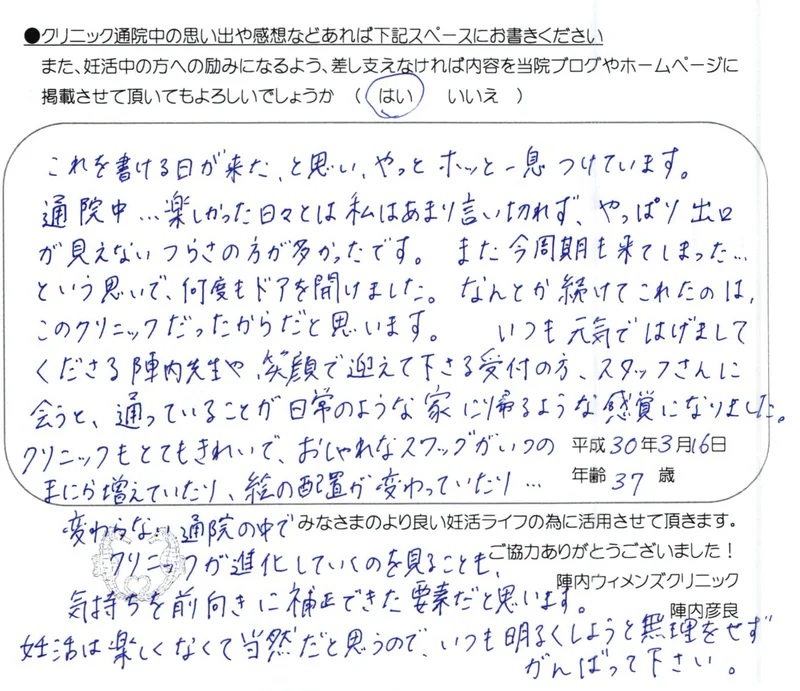 ●クリニック通院中の思い出や感想などあれば下記スペースにお書きください
また、妊活中の方への励みになるよう、差し支えなければ内容を当院ブログやホームページに
掲載させて頂いてもよろしいでしょうか （ はい いいえ ）
これを書ける日が来た、と思い、やっとホッと一息つけています。
通院中…楽しかった日々とは私はあまり言い切れず、やっぱり出口
が見えないつらさの方が多かったです。 また今周期も来てしまった…
という思いで、何度もドアを開けました。 なんとか続けてこれたのは、
このクリニックだったからだと思います。 いつも元気ではげまして
くださる陣内先生や、笑顔で迎えて下さる受付の方、スタッフさんに
会うと、通っていることが日常のような家に帰るような感覚になりました。
クリニックもとてもきれいで、おしゃれなスワッグがいつの
まにか増えていたり、絵の配置が変わっていたり…
平成30年3月16日
年齢 37 歳
変わらない通院の中で
クリニックが進化していくのを見ることも、
気持ちを前向きに補正できた要素だと思います。
妊活は楽しくなくて当然だと思うので、いつも明るくしようと無理をせず
がんばって下さい。
みなさまのより良い妊活ライフの為に活用させて頂きます。
ご協力ありがとうございました！
陣内ウィメンズクリニック
陣内彦良